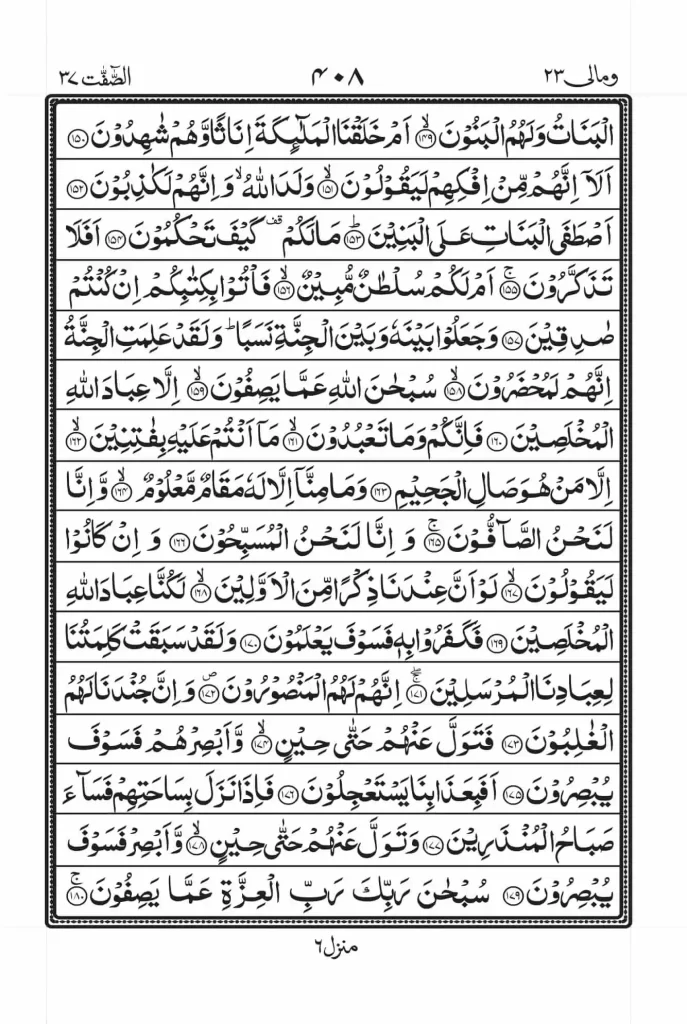 ومالی ۲۳ ۴۰۸ الصّٰٓفّٰت ۳۷
الْبَنَاتُ وَلَهُمُ الْبَنُوْنَ ۙ﴿۱۴۹﴾ اَمْ خَلَقْنَا الْمَلٰٓئِكَةَ اِنَاثًا وَّهُمْ شٰهِدُوْنَ ﴿۱۵۰﴾
اَلَاۤ اِنَّهُمْ مِّنْ اِفْكِهِمْ لَيَقُوْلُوْنَ ۙ﴿۱۵۱﴾ وَلَدَ اللّٰهُ ۙ وَاِنَّهُمْ لَكٰذِبُوْنَ ﴿۱۵۲﴾
اَصْطَفَى الْبَنَاتِ عَلَى الْبَنِيْنَ ؕ﴿۱۵۳﴾ مَا لَكُمْ ۟ كَيْفَ تَحْكُمُوْنَ ﴿۱۵۴﴾ اَفَلَا
تَذَكَّرُوْنَ ۚ﴿۱۵۵﴾ اَمْ لَكُمْ سُلْطٰنٌ مُّبِيْنٌ ۙ﴿۱۵۶﴾ فَاْتُوْا بِكِتٰبِكُمْ اِنْ كُنْتُمْ
صٰدِقِيْنَ ﴿۱۵۷﴾ وَجَعَلُوْا بَيْنَهٗ وَبَيْنَ الْجِنَّةِ نَسَبًا ؕ وَلَقَدْ عَلِمَتِ الْجِنَّةُ
اِنَّهُمْ لَمُحْضَرُوْنَ ۙ﴿۱۵۸﴾ سُبْحٰنَ اللّٰهِ عَمَّا يَصِفُوْنَ ۙ﴿۱۵۹﴾ اِلَّا عِبَادَ اللّٰهِ
الْمُخْلَصِيْنَ ﴿۱۶۰﴾ فَاِنَّكُمْ وَمَا تَعْبُدُوْنَ ۙ﴿۱۶۱﴾ مَاۤ اَنْتُمْ عَلَيْهِ بِفٰتِنِيْنَ ۙ﴿۱۶۲﴾
اِلَّا مَنْ هُوَ صَالِ الْجَحِيْمِ ﴿۱۶۳﴾ وَمَا مِنَّاۤ اِلَّا لَهٗ مَقَامٌ مَّعْلُوْمٌ ۙ﴿۱۶۴﴾ وَّاِنَّا
لَنَحْنُ الصَّآفُّوْنَ ۚ﴿۱۶۵﴾ وَ اِنَّا لَنَحْنُ الْمُسَبِّحُوْنَ ﴿۱۶۶﴾ وَ اِنْ كَانُوْا
لَيَقُوْلُوْنَ ۙ﴿۱۶۷﴾ لَوْ اَنَّ عِنْدَنَا ذِكْرًا مِّنَ الْاَوَّلِيْنَ ۙ﴿۱۶۸﴾ لَكُنَّا عِبَادَ اللّٰهِ
الْمُخْلَصِيْنَ ﴿۱۶۹﴾ فَكَفَرُوْا بِهٖ فَسَوْفَ يَعْلَمُوْنَ ﴿۱۷۰﴾ وَلَقَدْ سَبَقَتْ كَلِمَتُنَا
لِعِبَادِنَا الْمُرْسَلِيْنَ ۚۖ﴿۱۷۱﴾ اِنَّهُمْ لَهُمُ الْمَنْصُوْرُوْنَ ۪﴿۱۷۲﴾ وَاِنَّ جُنْدَنَا لَهُمُ
الْغٰلِبُوْنَ ﴿۱۷۳﴾ فَتَوَلَّ عَنْهُمْ حَتّٰى حِيْنٍ ۙ﴿۱۷۴﴾ وَّاَبْصِرْهُمْ فَسَوْفَ
يُبْصِرُوْنَ ﴿۱۷۵﴾ اَفَبِعَذَابِنَا يَسْتَعْجِلُوْنَ ﴿۱۷۶﴾ فَاِذَا نَزَلَ بِسَاحَتِهِمْ فَسَآءَ
صَبَاحُ الْمُنْذَرِيْنَ ﴿۱۷۷﴾ وَتَوَلَّ عَنْهُمْ حَتّٰى حِيْنٍ ۙ﴿۱۷۸﴾ وَّاَبْصِرْ فَسَوْفَ
يُبْصِرُوْنَ ﴿۱۷۹﴾ سُبْحٰنَ رَبِّكَ رَبِّ الْعِزَّةِ عَمَّا يَصِفُوْنَ ۚ﴿۱۸۰﴾
منزل ۶